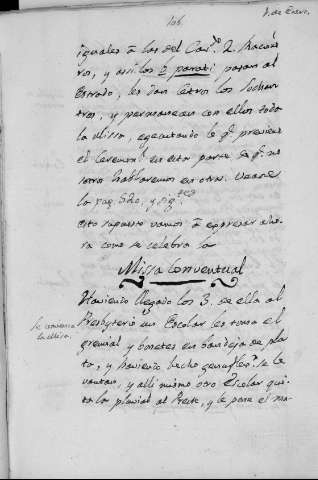 106
1. de Enero.
iguales á las del Cap.º 2. Racio
ros, y assi los 2 parati pasan al
Estrado, les dan Cetros los Sochan
tres, y permanecen con ellos toda
la Missa, egecutando lo q.e previene
el Ceremon.l en esta parte de q.e no
sotros hablaremos en otra. Veanse
la pag. 520, y sig.tes
Esto supuesto vamos á expresar aho
ra como se celebra la
Missa Conventual
Haviendo llegado los 3. de ella al
Presbyterio un Escolar les toma el
gremial, y bonetes en bandeja de pla
ta, y haviendo hecho genuflex.n se le
vantan, y alli mismo otro Escolar qui
ta la pluvial al Preste, y le pone el ma
Se comienza
la Missa.